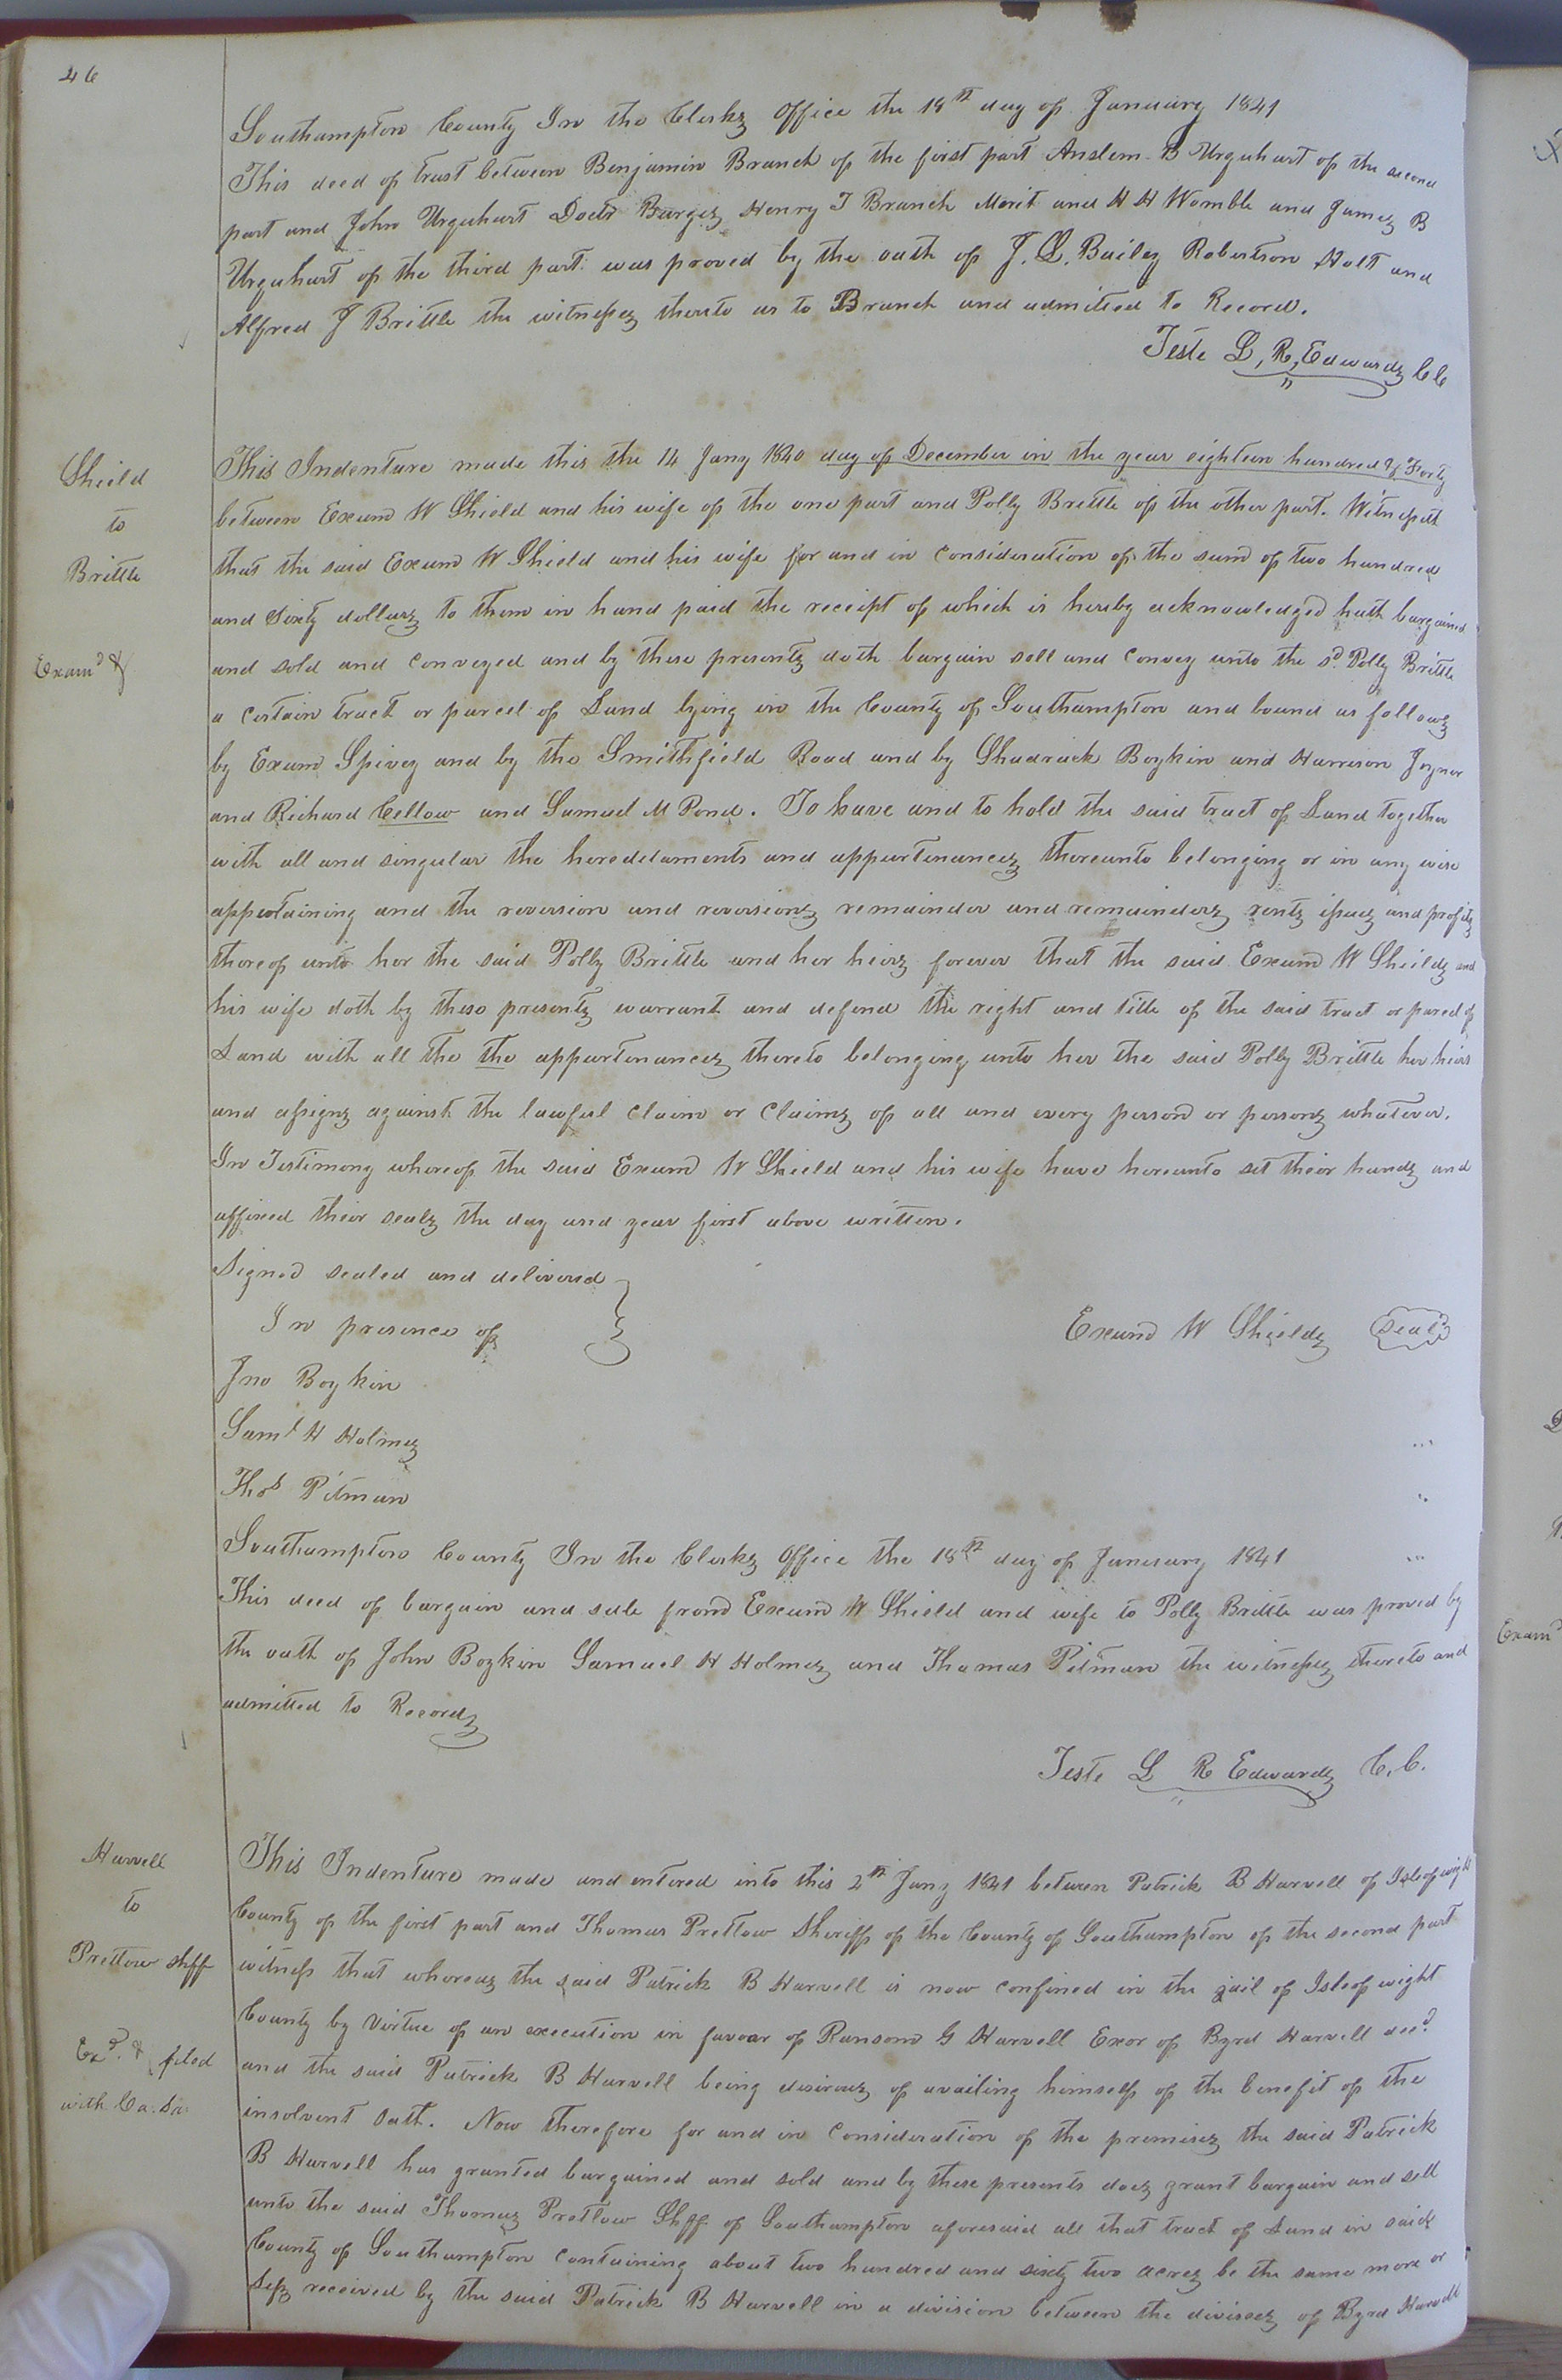 46
Southampton County In the Clerks Office the 18th day of January 1841
This deed of trust between Benjamin Branch of the first part Anslem B Urquhart of the second
part and John Urquhart Doctr Burges Henry J Branch Merit and H H Womble and James B
Urquhart of the third part was proved by the oath of J. L. Bailey Robertson Holt and
Alfred J Brittle the witnesses thereto as to Branch and admitted to Record.
Teste L, R, Edwards CC
Shield
to
Brittle
Examd &
This Indenture made this the 14 Jany 1840 day of December in the year eighteen hundred & Forty
between Exum W Shield and his wife of the one part and Polly Brittle of the other part. Witnesseth
that the said Exum W Shield and his wife for and in Consideration of the sum of two hundred
and Sixty dollars to them in hand paid the receipt of which is hereby acknowledged hath bargained
and sold and Conveyed and by these presents doth bargain sell and Convey unto the sd. Polly Brittle
a Certain tract or parcel of Land lying in the County of Southampton and bound as follows
by Exum Spivey and by the Smithfield Road and by Shadrack Boykin and Harrison Joyner
and Richard Cellow and Samuel M Pond. To have and to hold the said tract of Land together
with all and singular the heredelaments and appurtenances thereunto belonging or in any wise
appertaining and the reversion and reversions remainder and remainders rents issues and profits
thereof unto her the said Polly Brittle and her heirs forever that the said Exum W Sheilds and
his wife doth by these presents warrant and defend the right and title of the said tract or parcel of
Land with all the the appurtenances thereto belonging unto her the said Polly Brittle her heirs
and assigns against the lawful Claim or Claims of all and every person or persons whatever.
In Testimony whereof the said Exum W Shield and his wife have hereunto set their hands and
affixed their seals the day and year first above written.
Signed sealed and delivered
In presence of
Exum W Shields Seal
Jno Boykin
Saml H Holmes
Thos Pitman
Southampton County In the Clerks Office the 18th day of January 1841
This deed of bargain and sale from Exum W Shield and wife to Polly Brittle was proved by
the oath of John Boykin Samuel H Holmes and Thomas Pitman the witnesses thereto and
admitted to Record
Teste L R Edwards C.C.
Harvell
to
Prettow shff
Exd. & filed
with Ca. Sa.
This Indenture made and entered into this 2th Jany 1841 between Patrick B Harvell of Isleofwight
County of the first part and Thomas Pretlow Sheriff of the County of Southampton of the second part
witness that whereas the said Patrick B Harvell is now confined in the jail of Isleofwight
County by Virtue of an execution in favour of Ransom G Harvell Exor of Byrd Harvell decd.
and the said Patrick B Harvell being desirous of availing himself of the benefit of the
insolvent Oath. Now therefore for and in Consideration of the premises the said Patrick
B Harvell has granted bargained and sold and by these presents does grant bargain and sell
unto the said Thomas Pretlow Shff of Southampton aforesaid all that tract of Land in said
County of Southampton Containing about two hundred and sixty two acres be the same more or
Less received by the said Patrick B Harvell in a division between the divisees of Byrd Harvell
Examd